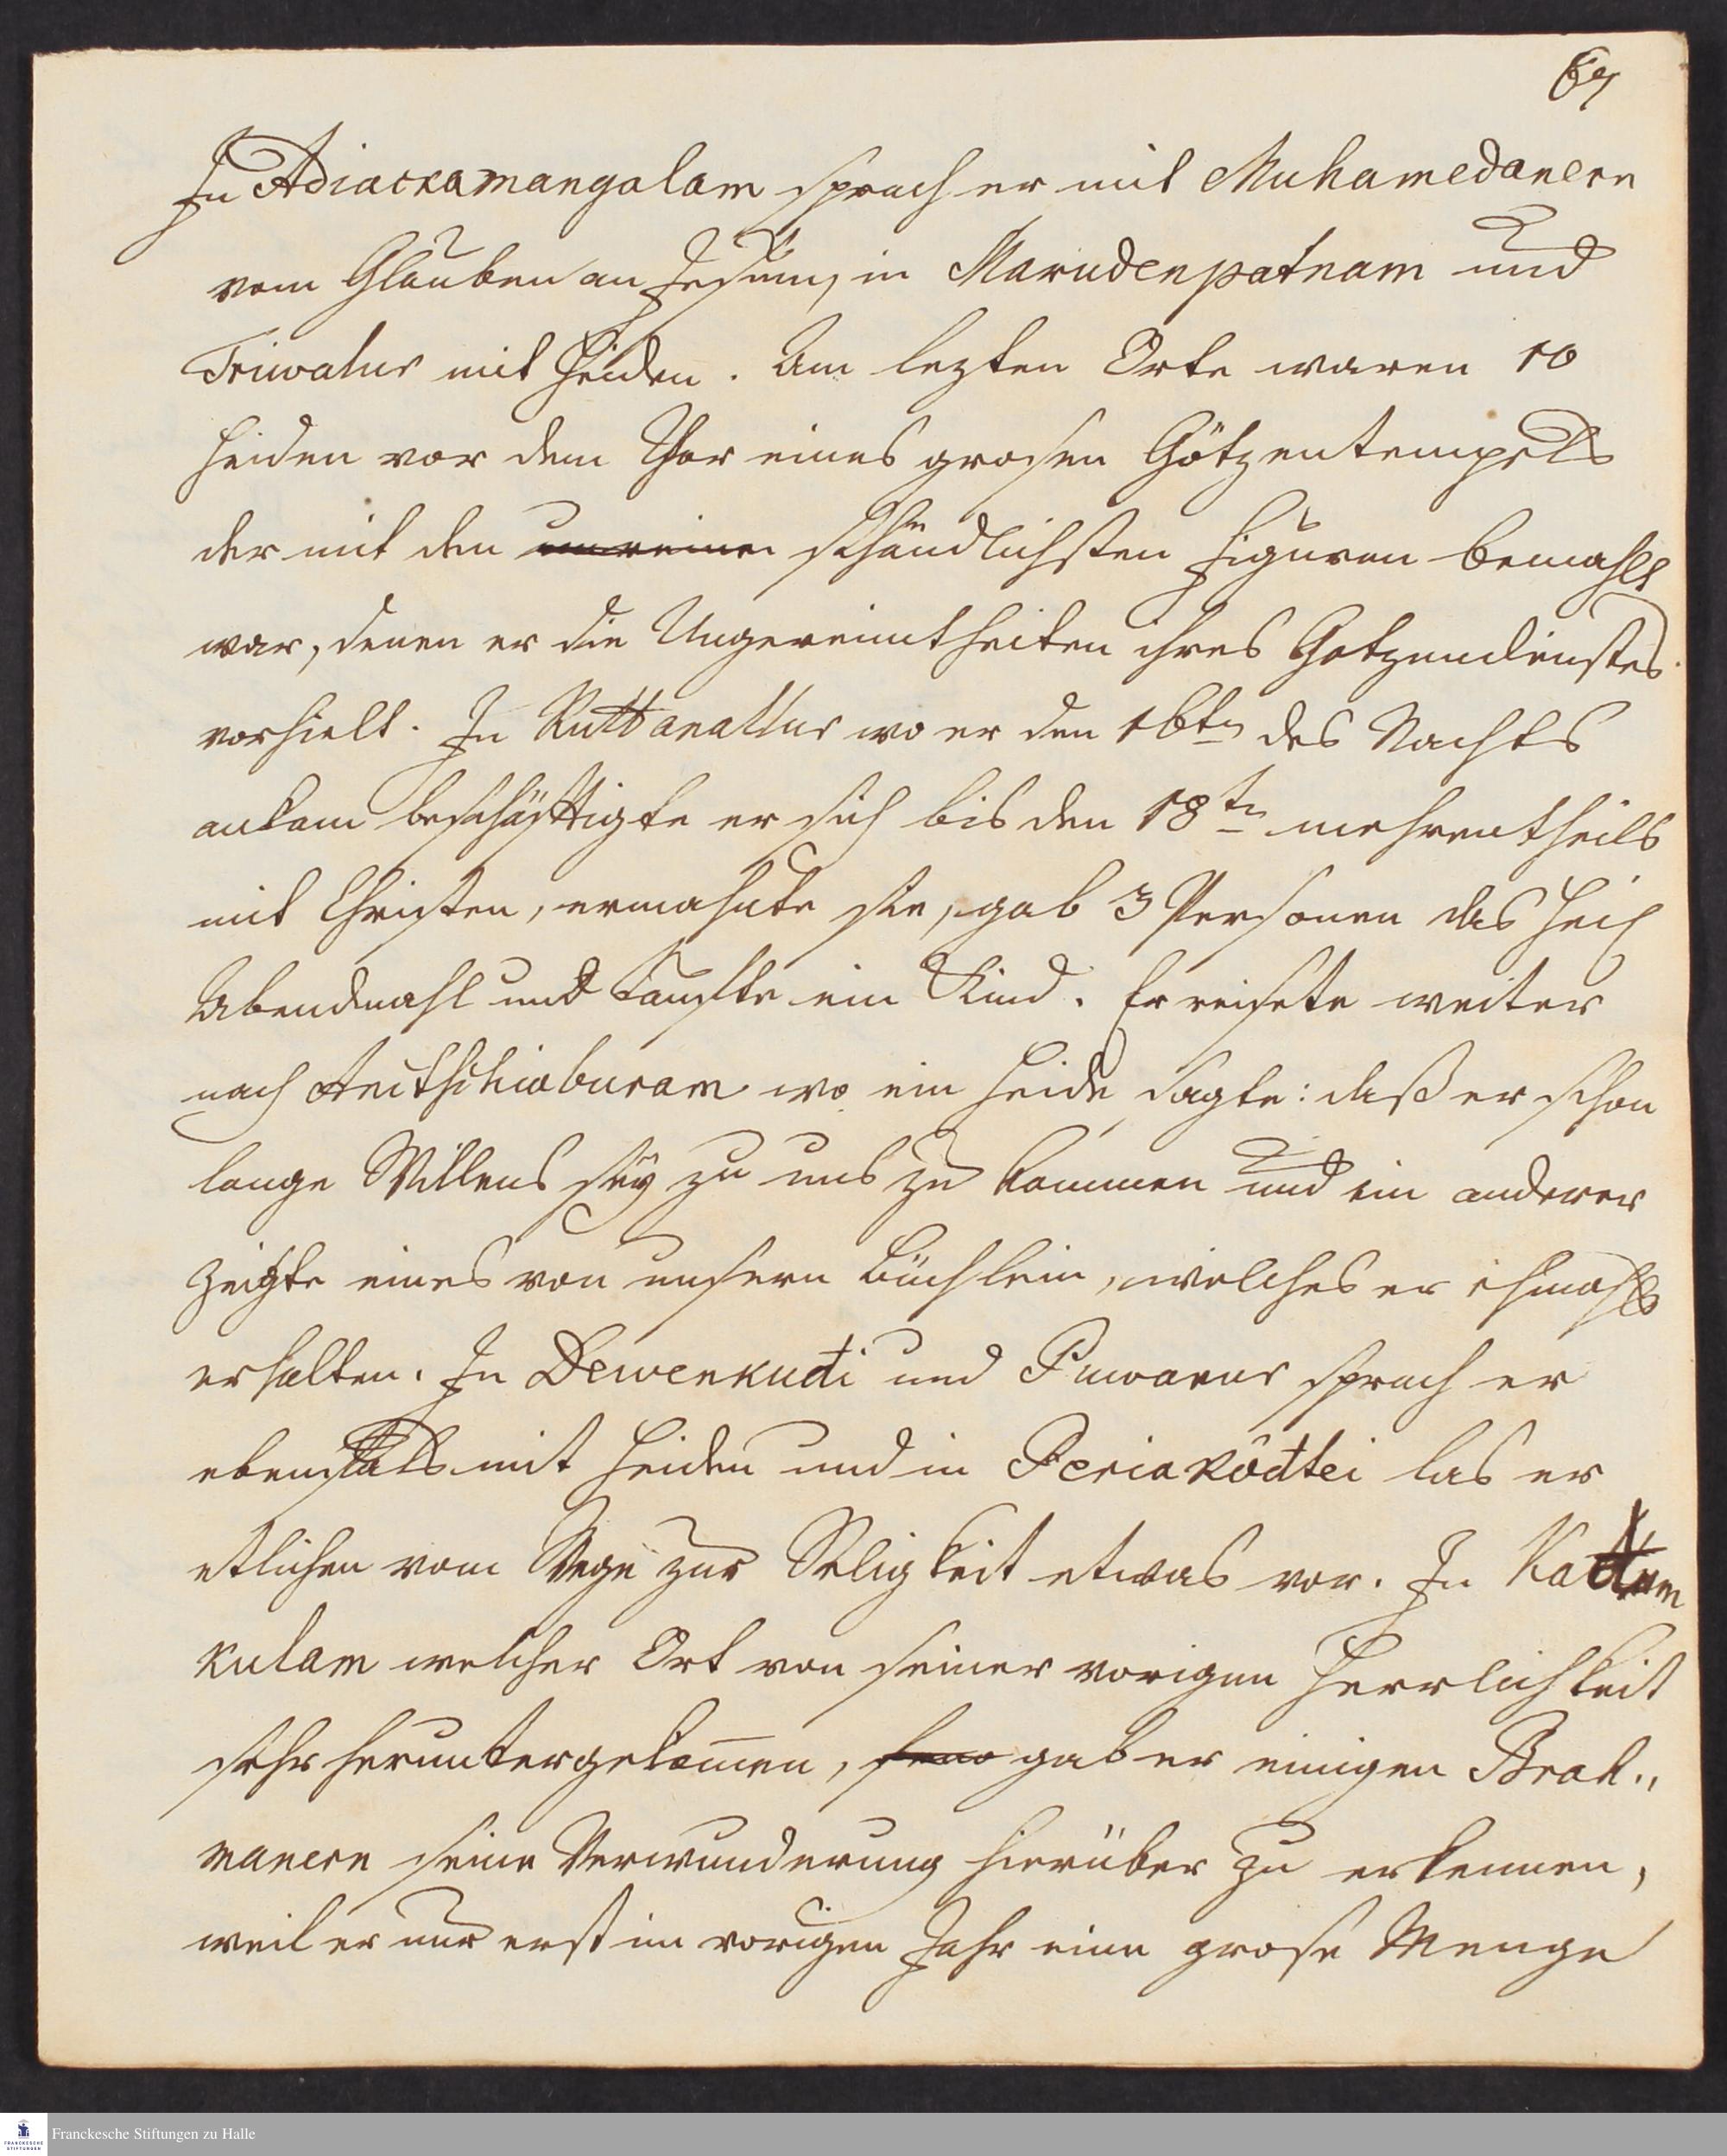 67
In Adiackamangalam sprach er mit Muhamedanern
vom Glauben an Jesum, in Marudenpatnam und
Triwalur mit Heiden. Am lezten Orte waren 10
Heiden vor dem Thor eines grosen Götzentempels
der mit den unreinen schändlichsten Figuren bemahlt
war, denen er die Ungereimtheiten ihres Gotzendienstes
vorhielt. In Kuttanallur wo er den 16tn des Nachts
ankam beschäftigte er sich bis den 18tn mehrentheils
mit Christen, ermahnte sie, gab 3 Personen das Heil
Abendmahl und taufte ein Kind. Er reisete weiter
nach Anitschiaburam wo ein Heide sagte: daß er schon
lange Willens sey zu uns zu kommen und ein anderer
zeigte eines von unsern Büchlein, welches er ehmahls
erhalten. In Dewenkudi und Puwanur sprach er
ebenfals mit Heiden und in Periaködtei las er
etlichen vom Wege zur Seligkeit etwas vor. In Kattum
kulam welcher Ort von seiner vorigen Herrlichkeit
sehr heruntergekommen, gab er einigen Brah„
manern seine Verwunderung hierüber zu erkennen,
weil er nur erst im vorigen Jahr eine grose Menge
Franckesche Stiftungen zu Halle
FRANCKESCHE
STIFTUNGEN